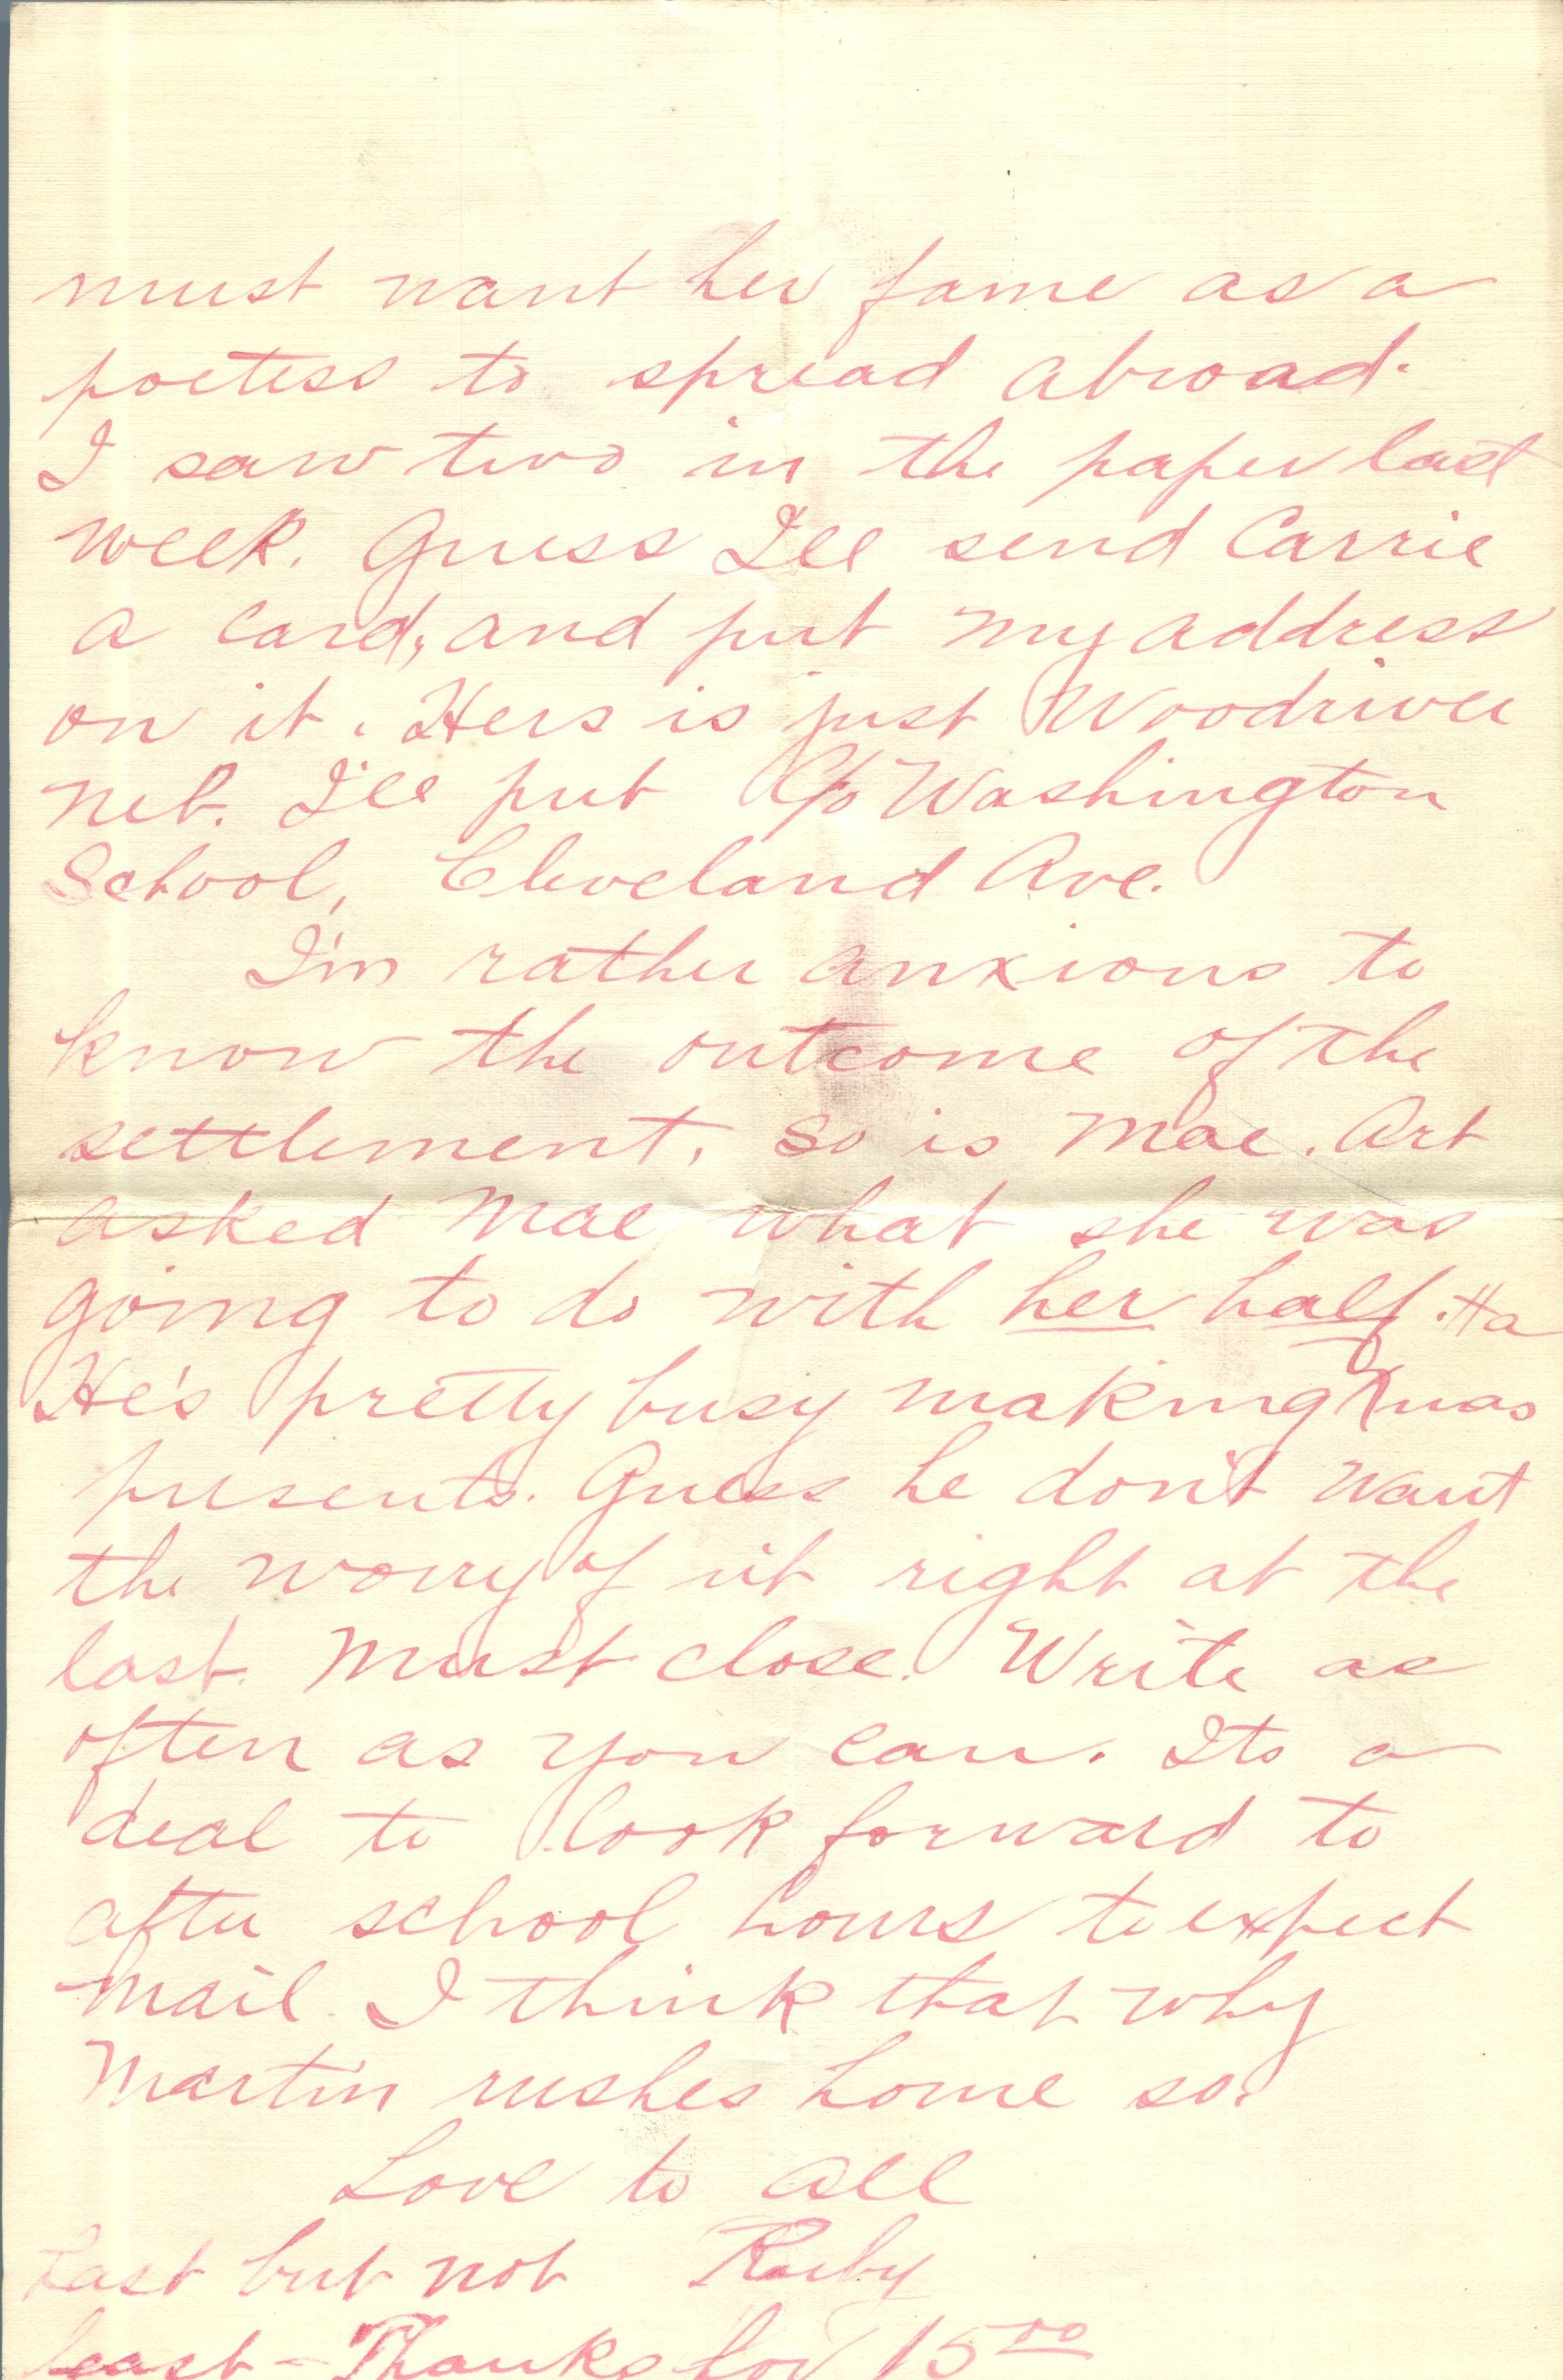 must want her fame as a
poetess to spread abroad.
I saw two in the paper last
week. Guess I'll send Carrie
a card, and put my address
on it. Hers is just Woodriver
Neb. I'll put C/o Washington
School, Cleveland Ave.
I'm rather anxious to
know the outcome of the
settlement. So is Mae. Art
asked Mae what she was
going to do with her half. Ha
He's pretty busy making Xmas
presents. Guess he don't want
the worry of it right at the
last. Must close. Write as
often as you can. Its a
deal to look forward to
after school hours to expect
mail. I think that why
Martin rushes home so.
Love to all
Last but not Ruby
least - Thanks for 15.00